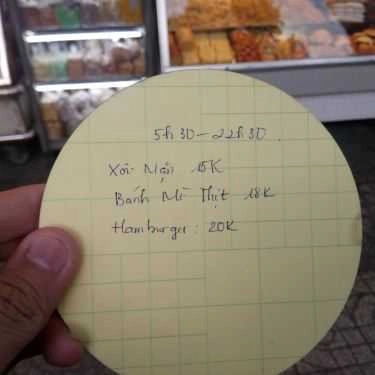 5h30 - 22h30.
Xôi Mặn 15K
Bánh Mì Thịt 18K
Hamburger : 20K